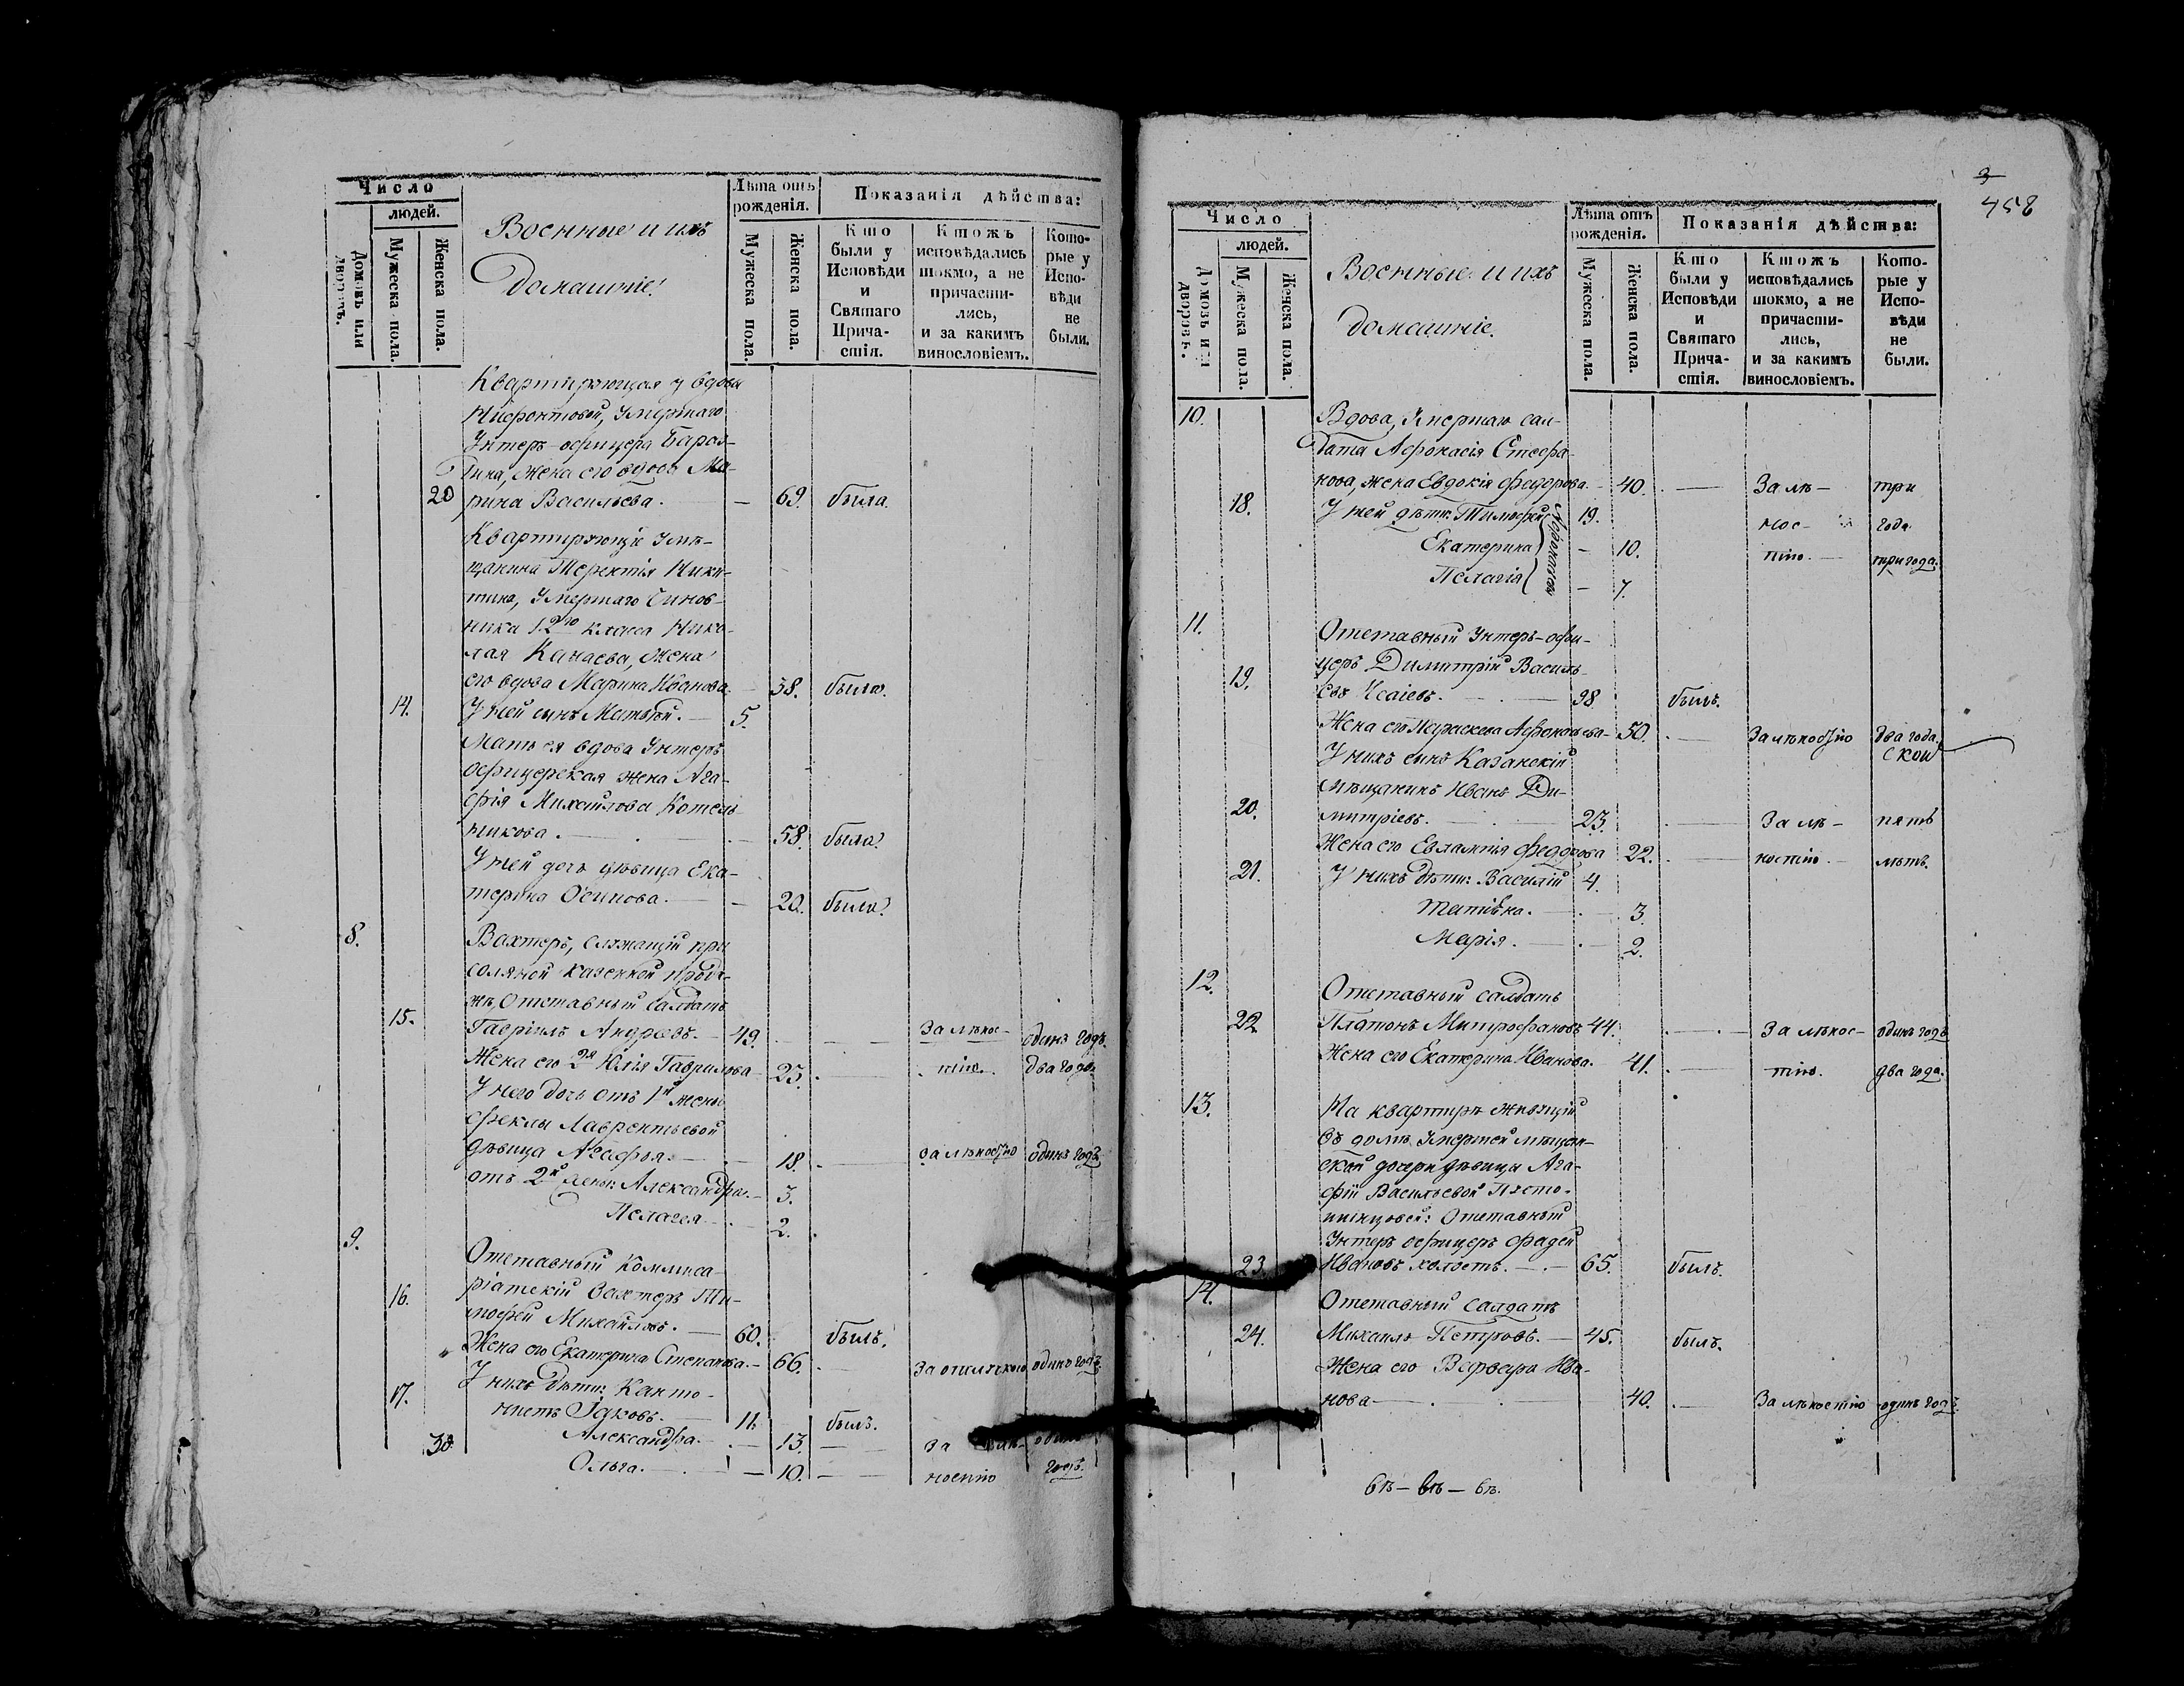 Число
людей.
Домовъ или дворовъ.
Мужеска пола.
Женска пола.
Военные и ихъ
домашніе.
Лѣта отъ рожденія.
Мужеска пола.
Женска пола.
Показанія дѣйства:
Кто были у Исповѣди и Святаго Прича-стія.
Ктожъ исповѣдались токмо, а не причасти-лись, и за какимъ винословіемъ.
Кото-рые у Испо-вѣди не были.
Квартирующая у вдовы
Нифонтовой, Умершаго
Унтеръ-офицера
тина, жена его вдова Ма-
20 рина Васильева. — 69. была.
Квартирующіе у мѣ-
щанина Терентія Ники-
тина, Умершаго Чинов-
ника 12го класса Нико-
лая Канаева, жена
его вдова Марина Иванова. — 38. была.
14. У ней сынъ Матвѣй. — 5.
Мать ея вдова Унтеръ
офицерская жена Ага-
фія Михайлова Котель-
никова. — 58. была.
У ней дочь дѣвица Ека-
терина Осипова. — 20. была.
8. Вахтеръ, служащій при
соляной казенной прода-
жѣ, Отставный Салдатъ
15. Гавріилъ Андреевъ. — 49. — За лѣнос- одинъ годъ.
Жена его 2я Юлія Гаврилова — 25. — тію. два года.
У него дочь отъ 1й жены
Феклы Лаврентьевой
дѣвица Агафья. — 18. — за лѣностію одинъ годъ.
отъ 2й жены: Александра. — 3.
Пелагея. — 2.
9. Отставный Коммиса-
ріатскій Вахтеръ Ти-
16. мофей Михайловъ. — 60. былъ.
Жена его Екатерина Степанова. — 66. — За отлучкою одинъ годъ.
У нихъ дѣти: Канто-
17. нистъ Іаковъ. — 11. былъ.
Александра. — 13. — за одинъ
30. Ольга. — 10. — ностію годъ.
3
458
Число
людей.
Домовъ или дворовъ.
Мужеска пола.
Женска пола.
Военные и ихъ
домашніе.
Лѣта отъ рожденія.
Мужеска пола.
Женска пола.
Показанія дѣйства:
Кто были у Исповѣди и Святаго Прича-стія.
Ктожъ исповѣдались токмо, а не причасти-лись, и за какимъ винословіемъ.
Кото-рые у Испо-вѣди не были.
10. Вдова, Умершаго сал-
дата Афонасія Стефа-
нова, жена Евдокія Федорова. — 40. — За лѣ- три
18. У ней дѣти: Тимофей 19. нос- года
Екатерина — 10. тію. — три года.
Пелагія — 7.
11. Отставный Унтеръ-офи-
19. церъ Димитрій Василь-
евъ Исаіевъ. — 98. былъ.
Жена его Параскева Афонасьева — 50. — За лѣностію два года.
У нихъ сынъ Казанскій
мѣщанинъ Иванъ Ди-
20. митріевъ. — 23. — За лѣ- пять
Жена его Евлампія Федорова 22. — ностію. — лѣтъ.
21. У нихъ дѣти: Василій 4.
Татіяна. — 3.
Марія. — 2.
12. Отставный салдатъ
22 Платонъ Митрофановъ 44. — За лѣнос- одинъ годъ
Жена его Екатерина Иванова. 41. — тію. два года.
13. На квартирѣ живущій
въ домѣ Умершей мѣщан-
ской дочери дѣвицы Ага-
фіи Васильевой
Отставный
Унтеръ офицеръ Фадей
23. Ивановъ холостъ. — 65. былъ.
14. Отставный салдатъ
24. Михаилъ Петровъ. — 45. былъ.
Жена его Варвара Ива-
нова — 40. — За лѣностію одинъ годъ.